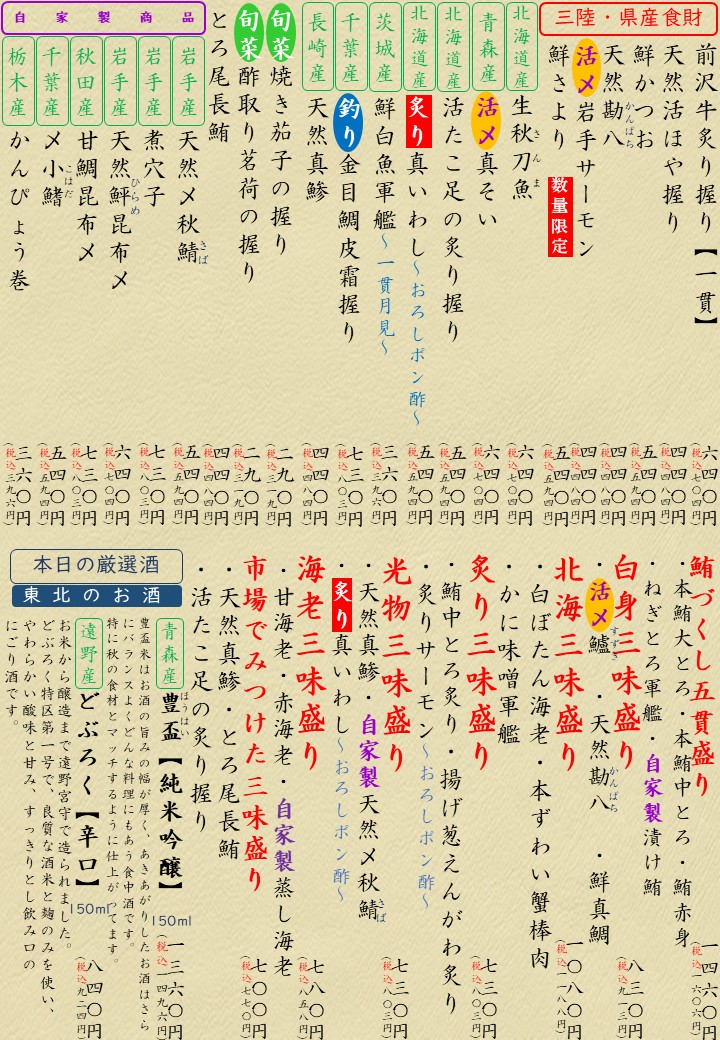 三陸・県産食財
前沢牛炙り握り【一貫】 六四〇円 (税込七〇四円)
天然活ほや握り 四四〇円 (税込四八四円)
鮮かつお 五四〇円 (税込五九四円)
天然勘八 四四〇円 (税込四八四円)
かんぱち
活〆岩手サーモン 四四〇円 (税込四八四円)
鮮さより 数量限定 五四〇円 (税込五九四円)
北海道産 生秋刀魚 六四〇円 (税込七〇四円)
さんま
青森産 活〆真そい 六四〇円 (税込七〇四円)
北海道産 活たこ足の炙り握り 五四〇円 (税込五九四円)
北海道産 炙り真いわし～おろしポン酢～ 五四〇円 (税込五九四円)
茨城産 鮮白魚軍艦～一貫月見～ 三六〇円 (税込三九六円)
千葉産 釣り金目鯛皮霜握り 七三〇円 (税込八〇三円)
長崎産 天然真鯵 四四〇円 (税込四八四円)
旬菜 焼き茄子の握り 二九〇円 (税込三一九円)
旬菜 酢取り茗荷の握り 二九〇円 (税込三一九円)
とろ尾長鮪 四四〇円 (税込四八四円)
自家製商品
岩手産 天然〆秋鯖 五四〇円 (税込五九四円)
さば
岩手産 煮穴子 七三〇円 (税込八〇三円)
岩手産 天然鮃昆布〆 六四〇円 (税込七〇四円)
ひらめ
秋田産 甘鯛昆布〆 七三〇円 (税込八〇三円)
千葉産 〆小鰭 五四〇円 (税込五九四円)
こはだ
栃木産 かんぴょう巻 三六〇円 (税込三九六円)
鮪づくし五貫盛り 一四六〇円 (税込一六〇六円)
・本鮪大とろ・本鮪中とろ・鮪赤身
・ねぎとろ軍艦・自家製漬け鮪
白身三味盛り 八三〇円 (税込九一三円)
・活〆鱸 ・天然勘八 ・鮮真鯛
すずき
かんぱち
北海三味盛り 一〇八〇円 (税込一一八八円)
・白ぼたん海老・本ずわい蟹棒肉
・かに味噌軍艦
炙り三味盛り 七三〇円 (税込八〇三円)
・鮪中とろ炙り・揚げ葱えんがわ炙り
・炙りサーモン～おろしポン酢～
光物三味盛り 七三〇円 (税込八〇三円)
・天然真鯵・自家製天然〆秋鯖
さば
・炙り真いわし～おろしポン酢～
海老三味盛り 七八〇円 (税込八五八円)
・甘海老・赤海老・自家製蒸し海老
市場でみつけた三味盛り 七〇〇円 (税込七七〇円)
・天然真鯵・とろ尾長鮪
・活たこ足の炙り握り
本日の厳選酒
東北のお酒
青森産 豊盃【純米吟醸】 150ml 一三六〇円 (税込一四九六円)
ほうはい
豊盃米はお酒の旨みの幅が厚く、あきあがりしたお酒はさら
にバランスよくどんな料理にもあう食中酒です。
特に秋の食材とマッチするように仕上がってます。
遠野産 どぶろく【辛口】 150ml 八四〇円 (税込九二四円)
お米から醸造まで遠野宮守で造られました。
どぶろく特区第一号で、良質な酒米と麹のみを使い、
やわらかい酸味と甘み、すっきりとし飲み口の
にごり酒です。